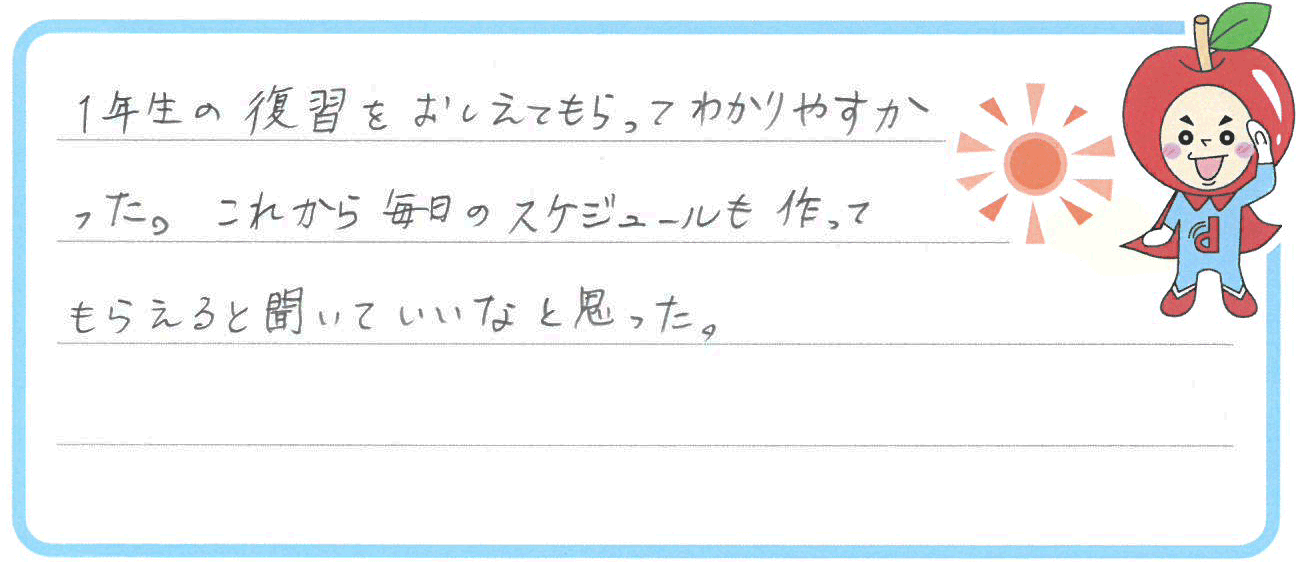 1年生の復習をおしえてもらってわかりやすか
った。これから毎日のスケジュールも作って
もらえると聞いていいなと思った。